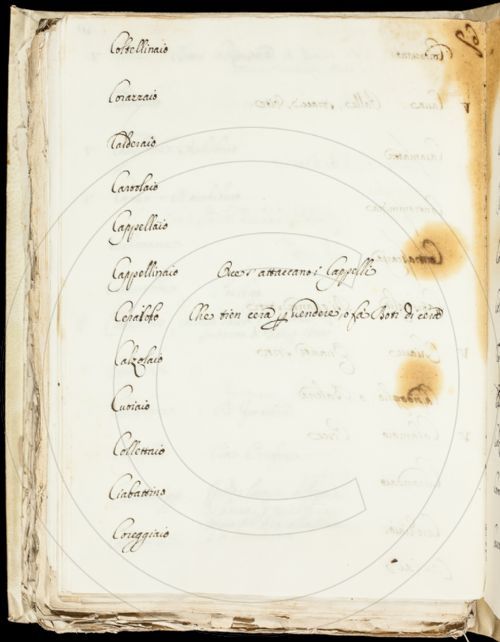 Coltellinaio
Corazzaio
Calderaio
Cartolaio
Cappellaio
Cappellinaio attaccano i Cappelli
Che tien cera vendere, o fà Boti di cera
Calzolaio
Cuoiaio
Collettaio
Ciabattino
Coreggiaio